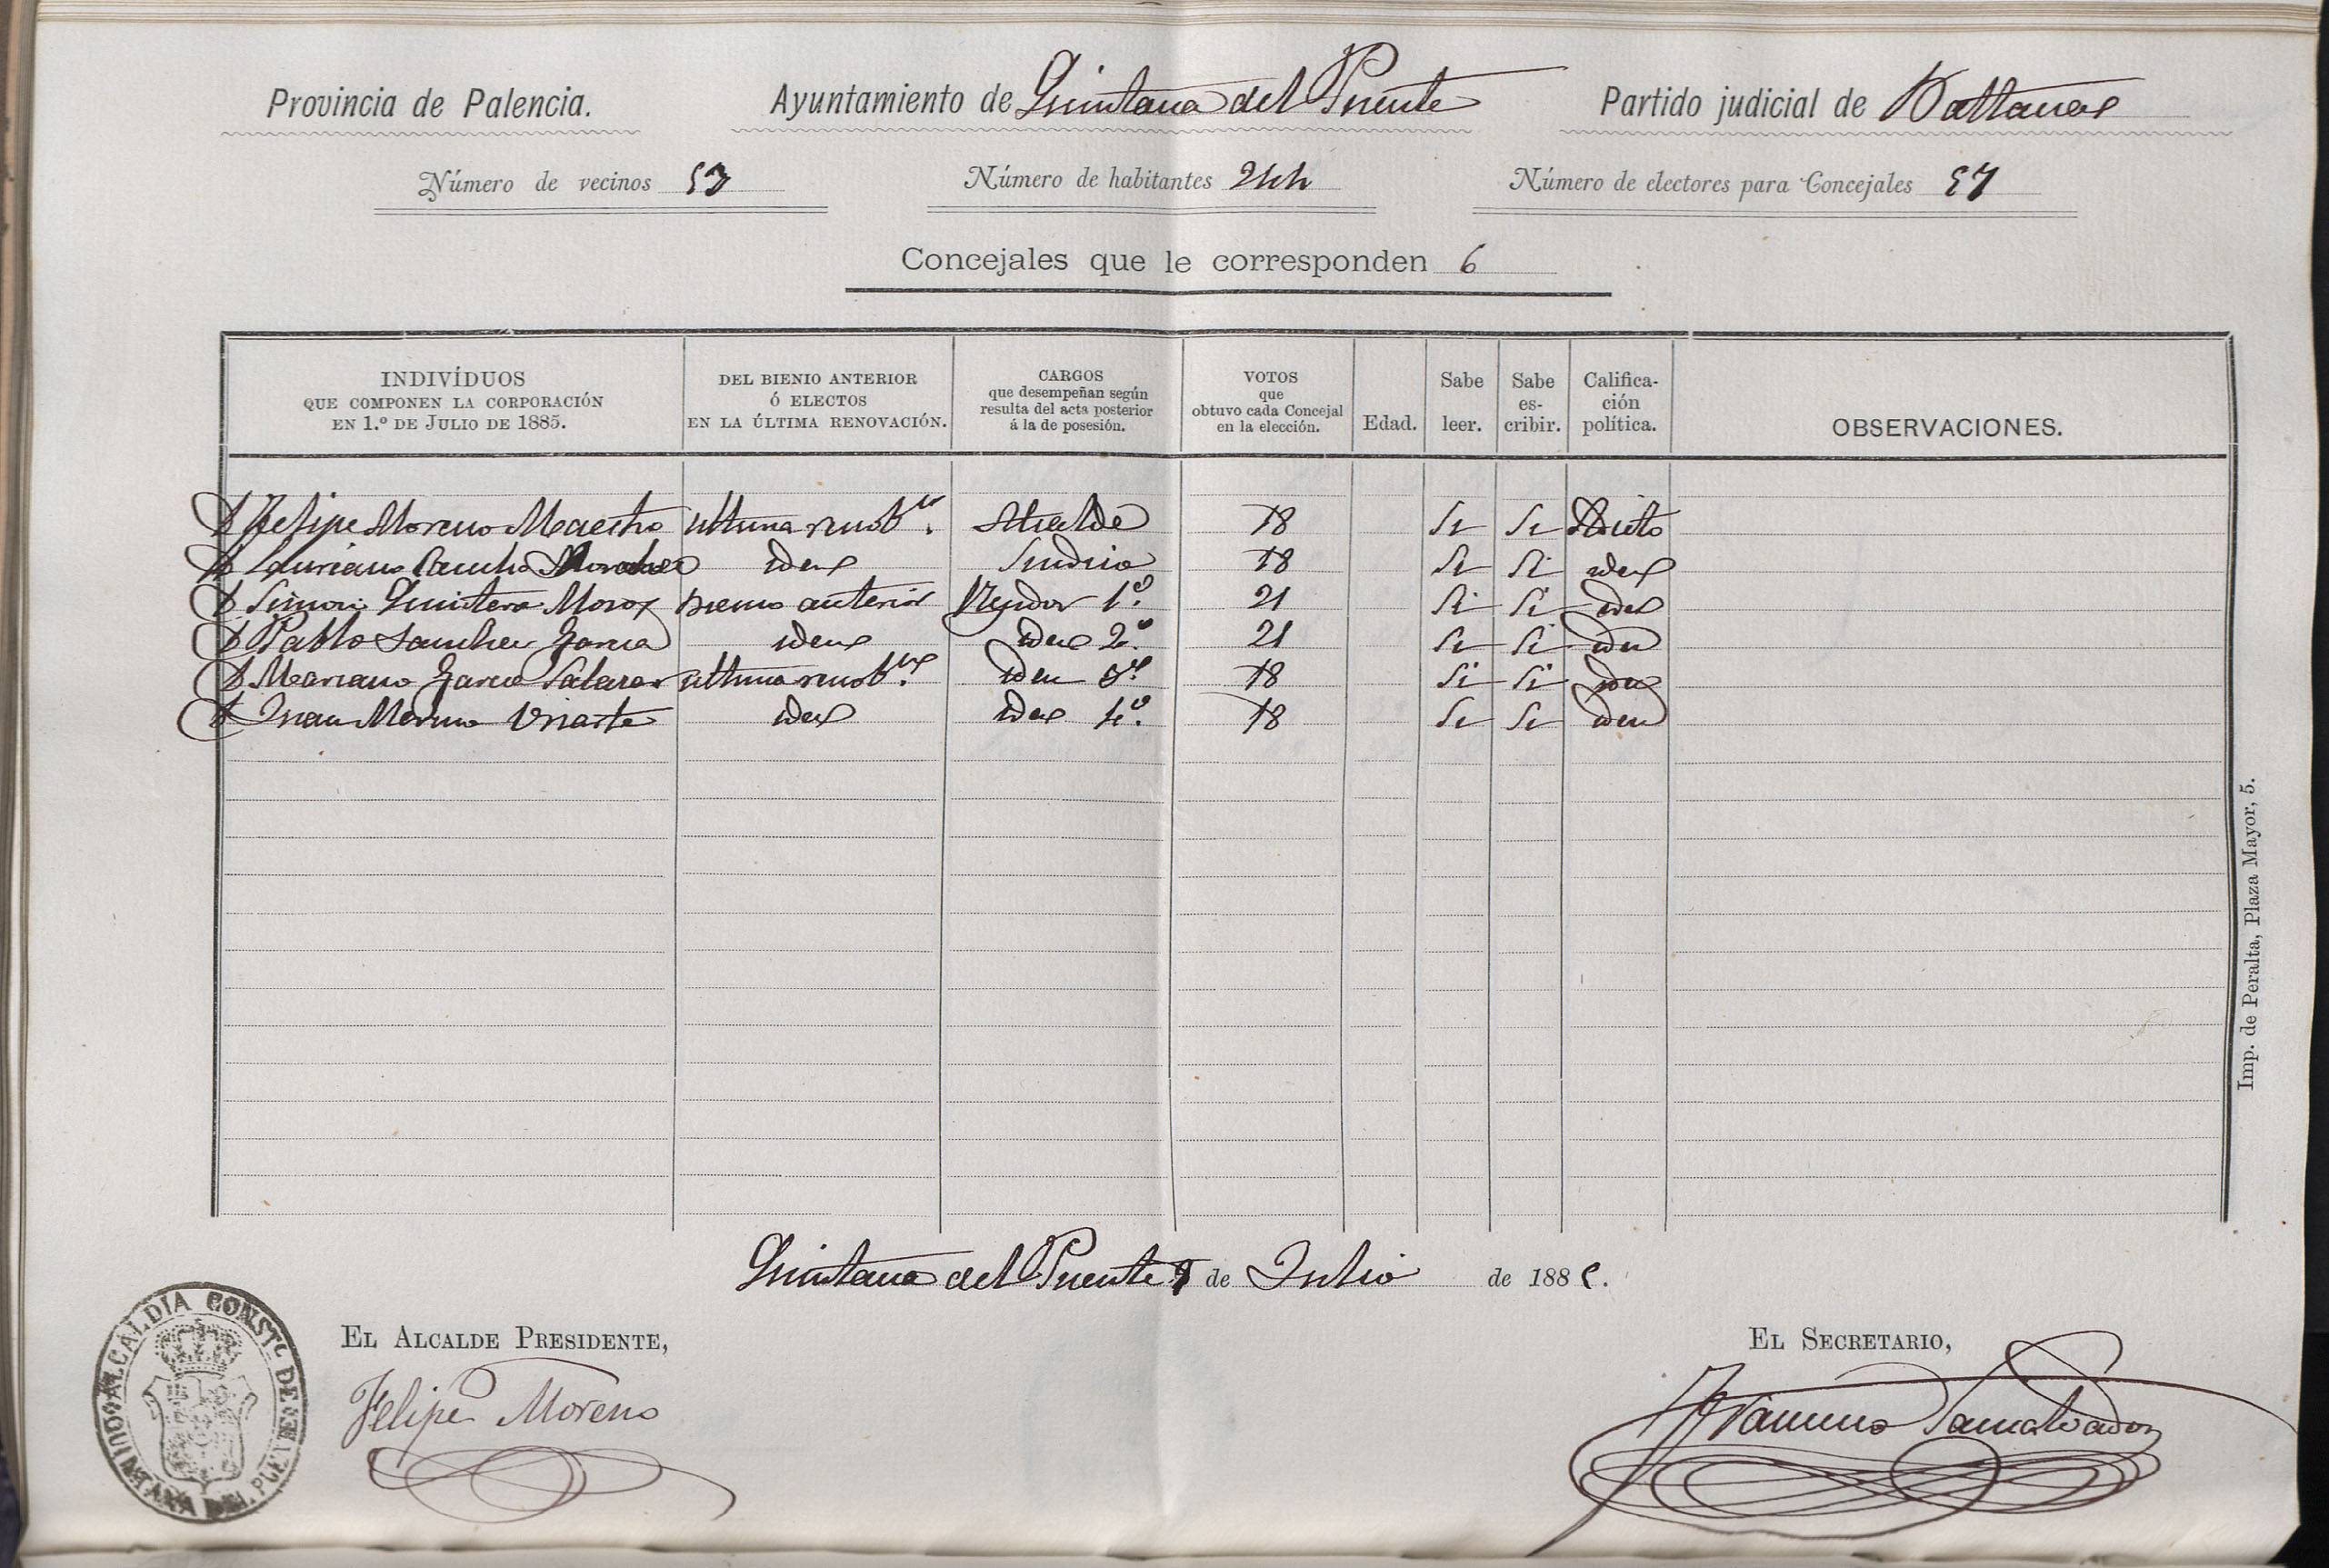 Provincia de Palencia. Ayuntamiento de Quintana del Puente Partido judicial de Baltanas
Número de vecinos 53 Número de habitantes 244 Número de electores para Concejales 57
Concejales que le corresponden 6
INDIVÍDUOS QUE COMPONEN LA CORPORACIÓN EN 1.º DE JULIO DE 1885.
DEL BIENIO ANTERIOR Ó ELECTOS EN LA ÚLTIMA RENOVACIÓN.
CARGOS que desempeñan según resulta del acta posterior á la de posesión.
VOTOS que obtuvo cada Concejal en la elección.
Edad.
Sabe leer.
Sabe es-cribir.
Califica-ción política.
OBSERVACIONES.
D Felipe Moreno Maestro ultima Alcalde 18 Si Si
D Sancho idem Sindico 18 Si Si idem
D Simon Quintero bienio anterior Regidor 1º. 21 Si Si idem
D Pablo Sanchez Garcia idem idem 2º. 21 Si Si idem
D Mariano Garcia Salazar ultima idem 3º. 18 Si Si idem
D Juan Merino Uriarte idem idem 4º. 18 Si Si idem
Quintana del Puente de Julio de 1885.
EL ALCALDE PRESIDENTE, EL SECRETARIO,
Felipe Moreno
ALCALDIA CONST. DE QUINTANA DEL PUENTE
Imp. de Peralta, Plaza Mayor, 5.